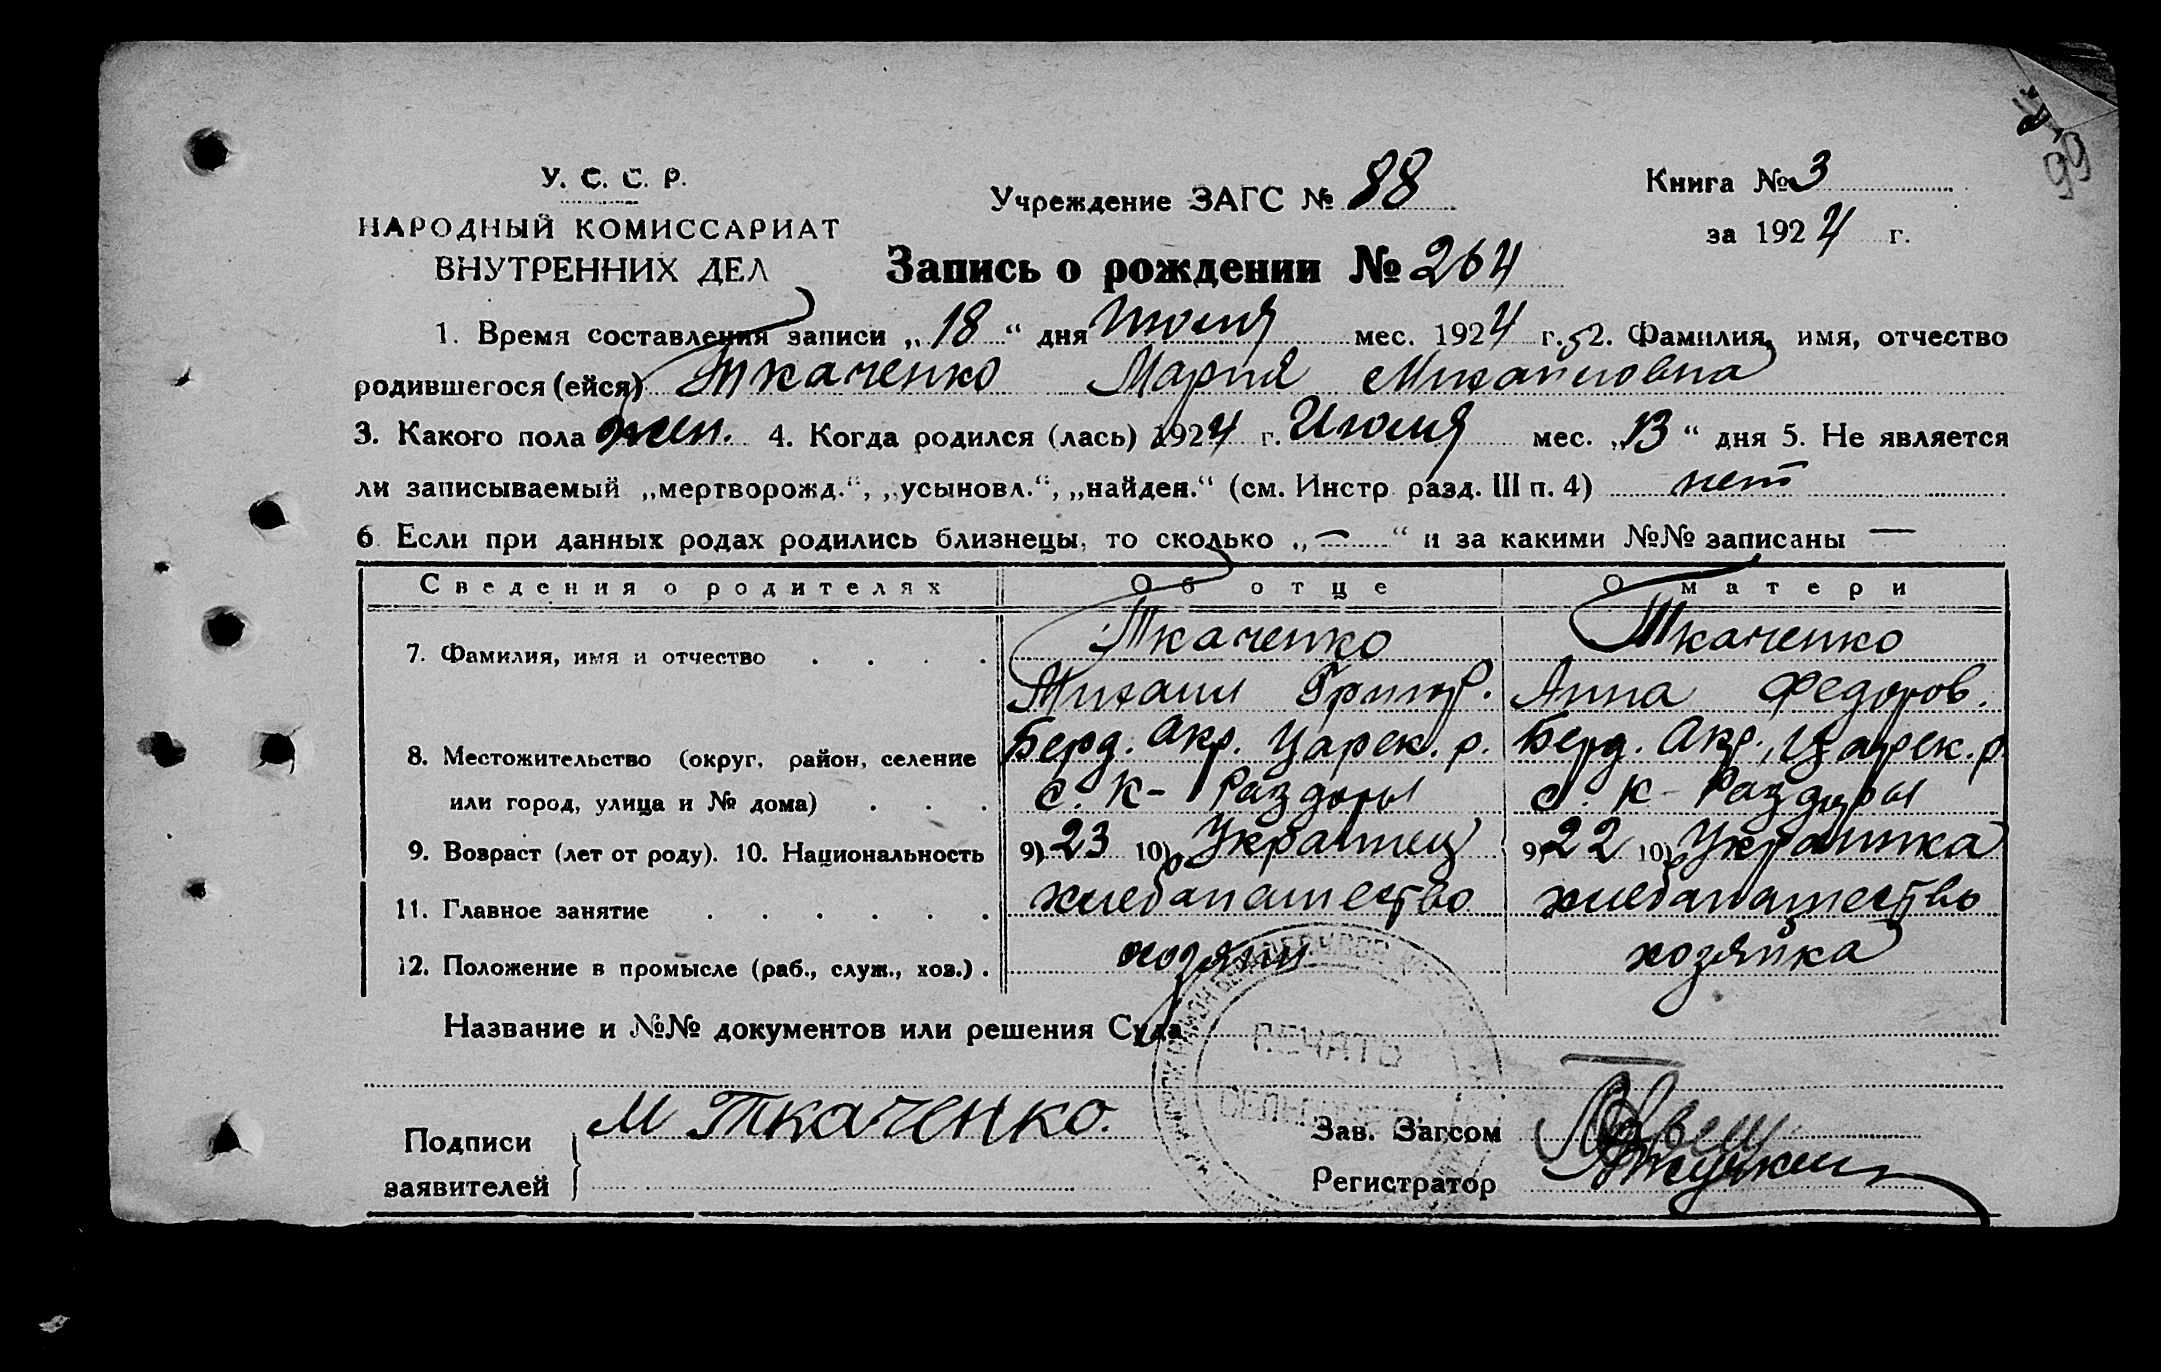 99
У. С. С. Р.
НАРОДНЫЙ КОМИССАРИАТ
ВНУТРЕННИХ ДЕЛ
Учреждение ЗАГС № 88
Книга № 3
за 1924 г.
Запись о рождении № 264
1. Время составления записи „18“ дня Июля мес. 1924 г. 2. Фамилия, имя, отчество
родившегося (ейся) Ткаченко Мария Михайловна
3. Какого пола жен. 4. Когда родился (лась) 1924 г. Июля мес. „13“ дня 5. Не является
ли записываемый „мертворожд.“, „усыновл.“, „найден.“ (см. Инстр. разд. III п. 4) нет
6. Если при данных родах родились близнецы, то сколько „—“ и за какими №№ записаны —
Сведения о родителях Об отце О матери
7. Фамилия, имя и отчество . . . . Ткаченко Ткаченко
Михаил Григор. Анна Федоров.
8. Местожительство (округ, район, селение Берд. Окр. Царек. р. Берд. Окр., Царек. р.
или город, улица и № дома) . . . с. К- Раздоры с. К- Раздоры
9. Возраст (лет от роду). 10. Национальность 9) 23 10) Украинец 9) 22 10) Украинка
11. Главное занятие . . . . . . хлебапашество хлебапашество
12. Положение в промысле (раб., служ., хоз.) . хозяин хозяйка
Название и №№ документов или решения Суда
ПЕЧАТЬ
Подписи
заявителей
М Ткаченко.
Зав. Загсом
Регистратор